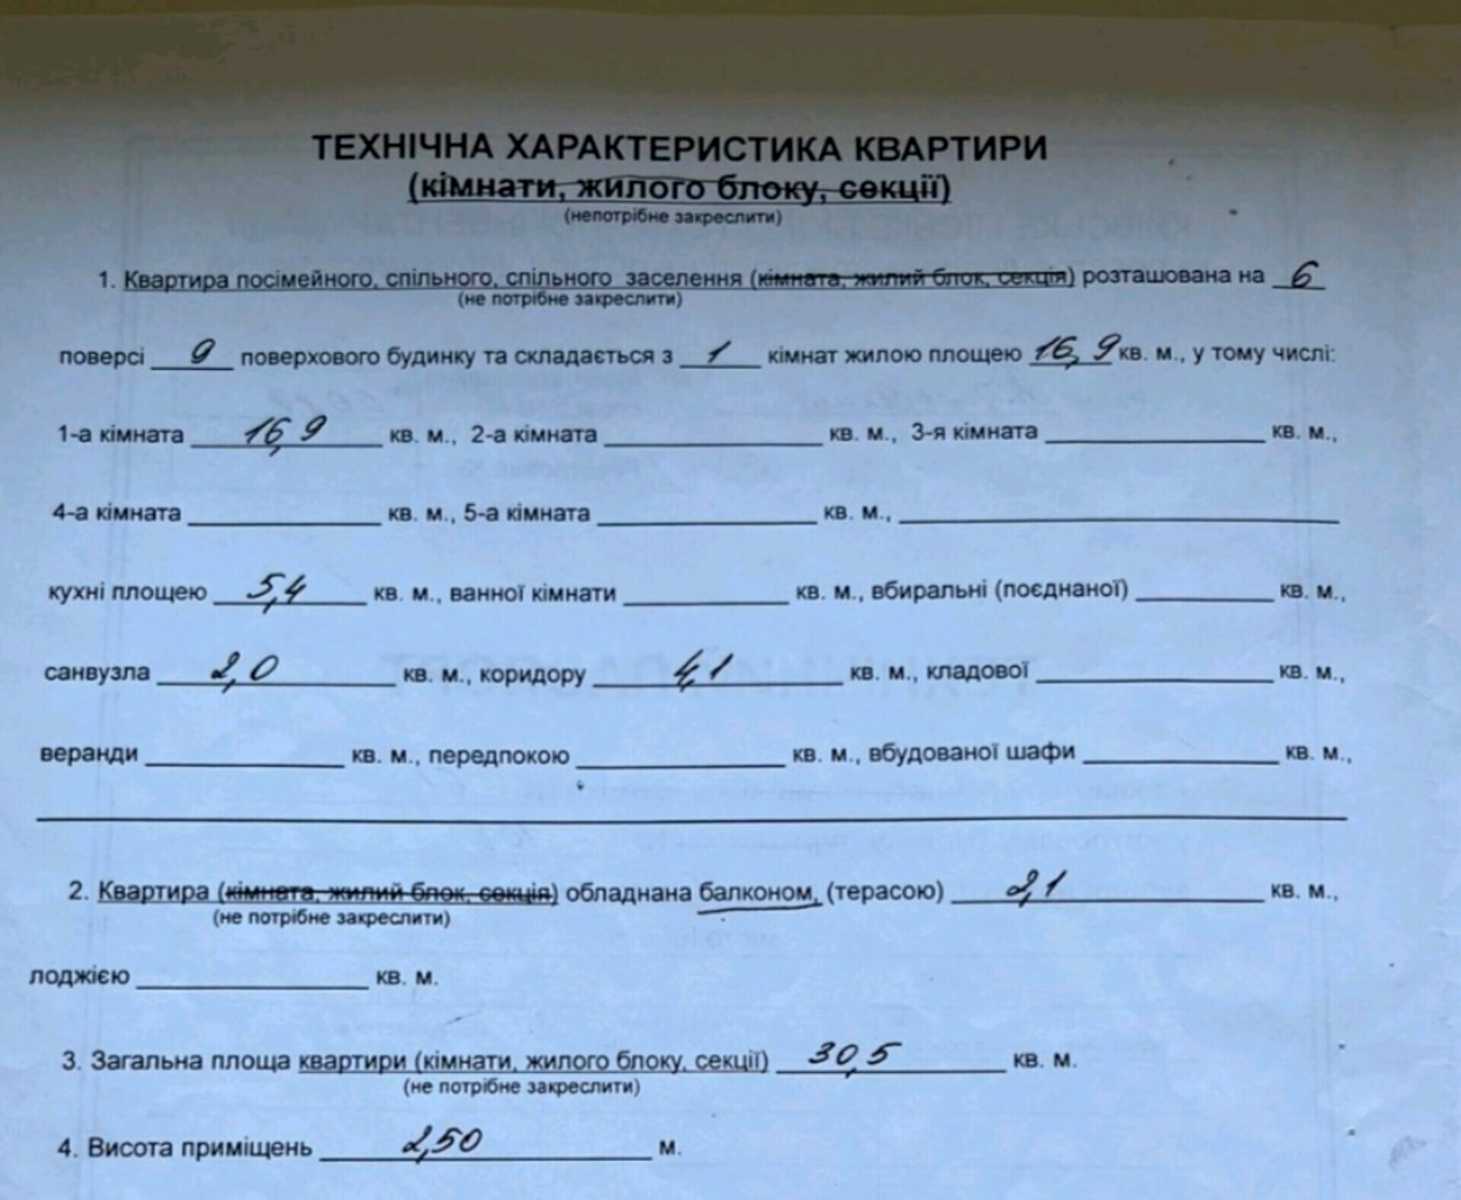 ТЕХНІЧНА ХАРАКТЕРИСТИКА КВАРТИРИ
(кімнати, жилого блоку, секції)
(непотрібне закреслити)
1. Квартира посімейного, спільного, спільного заселення (кімната, жилий блок, секція) розташована на 6
(не потрібне закреслити)
поверсі 9 поверхового будинку та складається з 1 кімнат жилою площею 16,9 кв. м., у тому числі:
1-а кімната 16,9 кв. м., 2-а кімната ____ кв. м., 3-я кімната ____ кв. м.,
4-а кімната ____ кв. м., 5-а кімната ____ кв. м., ____
кухні площею 5,4 кв. м., ванної кімнати ____ кв. м., вбиральні (поєднаної) ____ кв. м.,
санвузла 2,0 кв. м., коридору 4,1 кв. м., кладової ____ кв. м.,
веранди ____ кв. м., передпокою ____ кв. м., вбудованої шафи ____ кв. м.,
2. Квартира (кімната, жилий блок, секція) обладнана балконом, (терасою) 2,1 кв. м.,
(не потрібне закреслити)
лоджією ____ кв. м.
3. Загальна площа квартири (кімнати, жилого блоку, секції) 30,5 кв. м.
(не потрібне закреслити)
4. Висота приміщень 2,50 м.